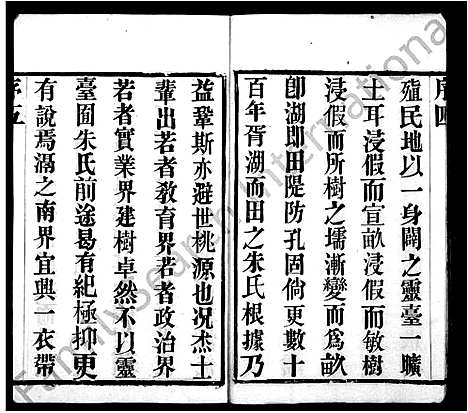 序四
殖民地以一身闢之靈臺一曠
土耳浸假而宣畝浸假而敏樹
浸假而所樹之壖漸變而為畝
卽湖即田隄防孔固倘更數十
百年胥湖而田之朱氏根據乃
益鞏斯亦避世桃源也况杰士
輩出若者敎育界若者政治界
若者實業界建樹卓然不以靈
臺囿朱氏前途曷有紀極抑更
有說焉滆之南界宜興一衣帶
序五
FamilySearch International